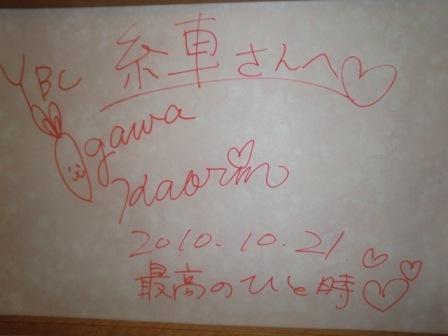 YBC 糸車さんへ♡
Ogawa
Kaorin
2010.10.21
最高のひと時♡♡♡